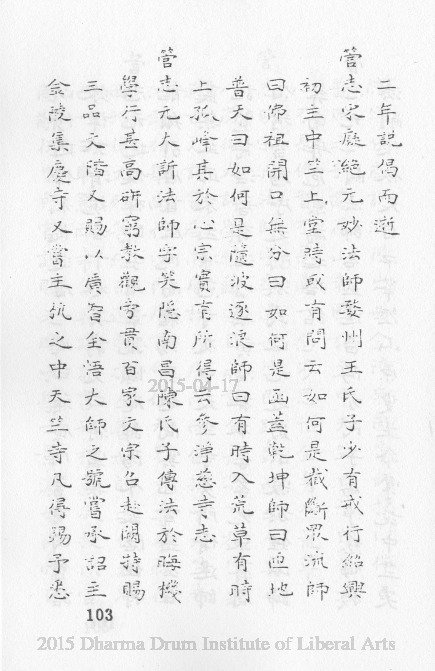 二年說偈而逝
管志宋癡絕元妙法師婺州王氏子少有戒行紹興
初主中竺上堂時或有問云如何是截斷眾流師
曰佛祖開口無分曰如何是函蓋乾坤師曰匝地
普天曰如何是隨波逐浪師曰有時入荒草有時
上孤峰其於心宗實有所得云參淨慈寺志
管志元大訢法師字笑隱南昌陳氏子傳法於晦機
學行甚高研窮教觀旁貫百家文宗召赴闕特賜
三品文階又賜以廣智全悟大師之號嘗承詔主
金陵集慶寺又嘗主杭之中天竺寺凡得賜予悉
103
2015-04-17
2015 Dharma Drum Institute of Liberal Arts